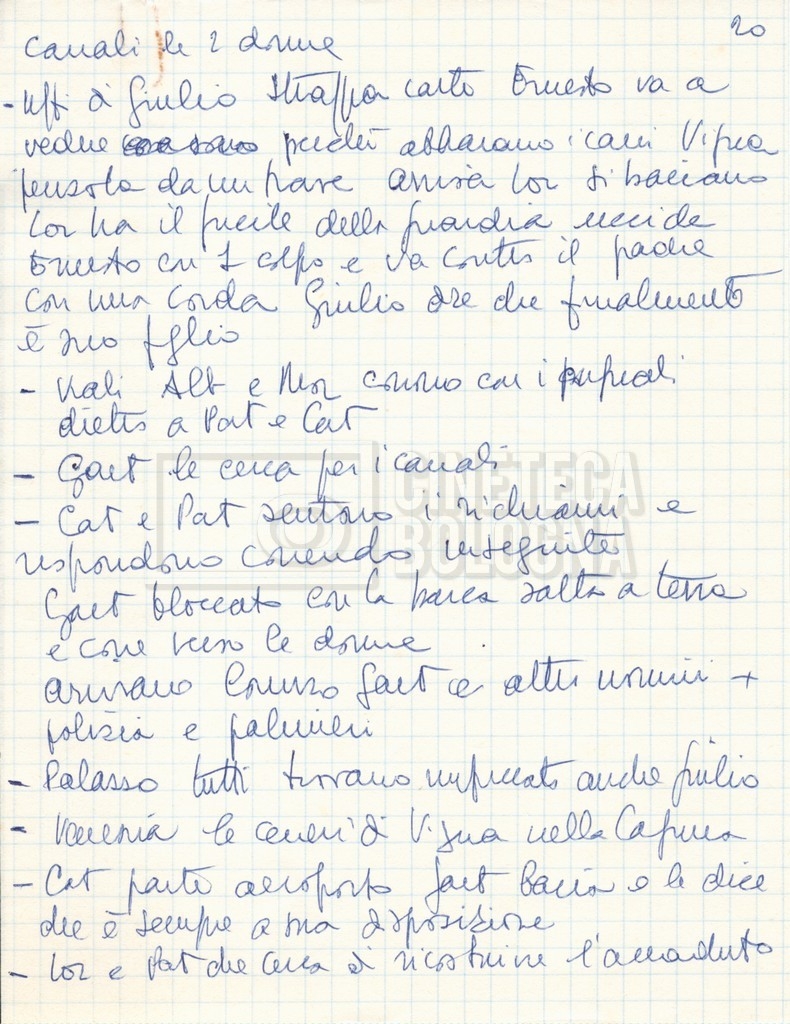 20
canali le 2 donne
- Uff di Giulio strappa carte Ernesto va a
vedere perché abbaiano i cani Vipera
penzola da un trave arriva Lor si baciano
Lor ha il fucile della guardia uccide
Ernesto con 1 colpo e va contro il padre
con una corda Giulio dice che finalmente
è suo figlio
- Kali Alb e Mor corrono con i pugnali
dietro a Pat e Cat
- Gaet le cerca per i canali
- Cat e Pat sentono i richiami e
rispondono correndo inseguite
Gaet bloccato con la barca salta a terra
e corre verso le donne
arrivano Lorenzo Gaet e altri uomini +
polizia e palmieri
- Palazzo tutti trovano impiccato anche Giulio
- Venezia le ceneri di nella Laguna
- Cat parte aeroporto Gaet bacia e le dice
che è sempre a sua disposizione
- Lor e Pat che cerca di ricostruire l'accaduto
CINETECA
BOLOGNA